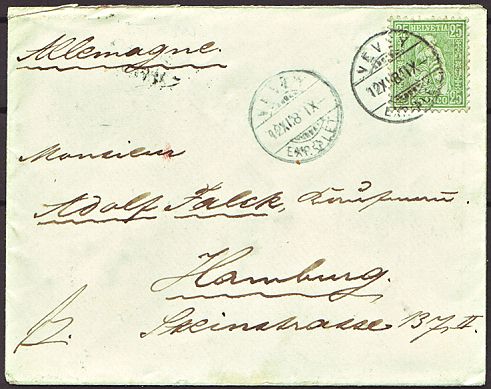 Allemagne.
25 HELVETIA 25
VEVEY
12.XI.8 IX
EXP. LET
VEVEY
12.XI.8 IX
EXP. LET
Monsieur
Adolf Falck, Kaufmann.
Hamburg.
Steinstrasse 137 II.